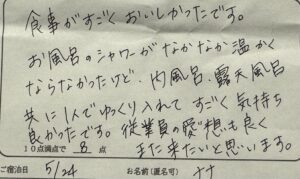 食事がすごくおいしかったです。
お風呂のシャワーがなかなか温かく
ならなかったけど、内風呂、露天風呂
共に1人でゆっくり入れてすごく気持ち
良かったです。従業員の愛想も良く
10点満点で 8 点 また来たいと思います。
ご宿泊日 5/24 お名前(匿名可) ナナ